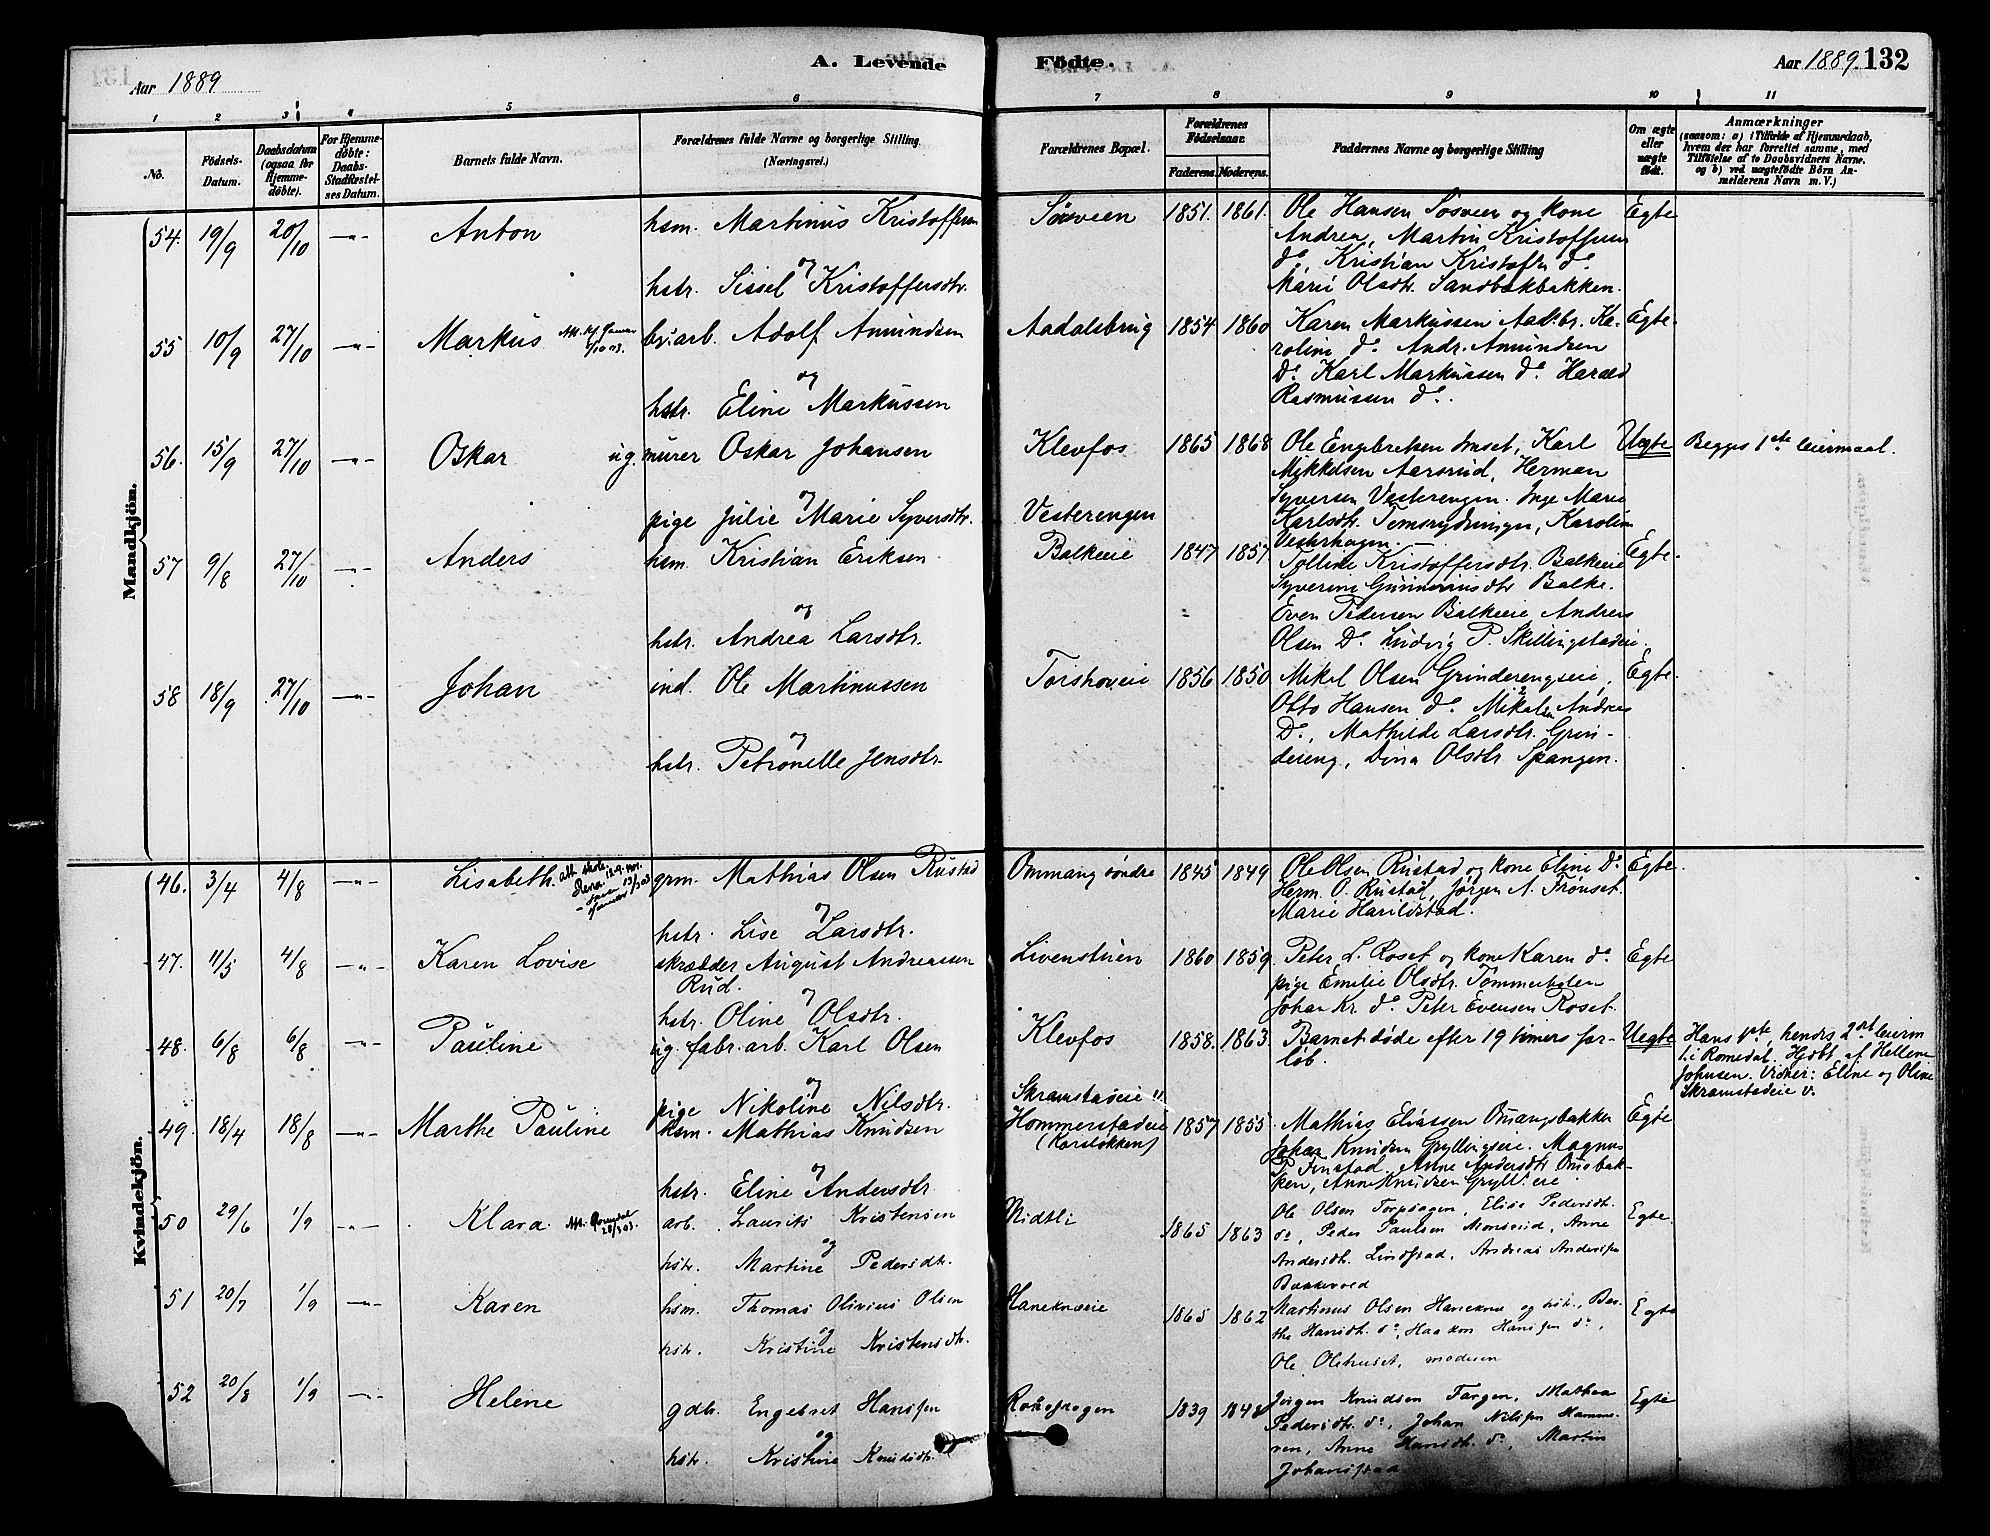 Aar 1889
A. Levende
Födte.
Aar 1889. 132
1 2 3 4 5 6 7 8 9 10 11
No.
Födsels-
Datum.
Daabsdatum
(ogsaa for
Hjemme-
döbte).
For Hjemme-
döbte:
Daabs-
Stadfæstel-
ses Datum.
Barnets fulde Navn.
Forældrenes fulde Navne og borgerlige Stilling
(Næringsvei.)
Forældrenes Bopæl.
Forældrenes
Födselsaar.
Faderens. Moderens.
Faddernes Navne og borgerlige Stilling
Om ægte
eller
uægte
födt.
Anmærkninger
(saasom: a) i Tilfælde af Hjemmedaab,
hvem der har forrettet samme, med
Tilföielse af to Daabsvidners Navne.
og b) ved uægtefödte Börn An-
melderens Navn m. V.)
Mandkjön.
54. 19/9 20/10 —"— Anton hsm. Martinus Kristoffersen
og
hstr. Sissel Kristoffersdtr.
Sösveen 1851. 1861. Ole Hansen Sösveen og kone Egte
Andrea, Martin Kristoffersen
do, Kristian Kristofs. do.
Marie Olsdtr. Sandbækbakken.
55 10/9 27/10 —"— Markus br.arb. Adolf Amundsen
og
hstr. Eline Markussen
Aadalsbrug 1854 1860 Karen Markussen Aad.br. Ka- Egte
roline do. Andr. Amundsen
Do. Karl Markussen do. Harald
Rasmussen do.
56. 15/9 27/10 —"— Oskar ug. murer Oskar Johansen
og
pige Julie Marie Syversdtr.
Klevfos
Vesterengen
1865 1868 Ole Engbretsen Imset, Karl Uegte Begges 1ste leiermaal.
Mikkelsen Aarsrud, Herman
Syversen Vesterengen. Inge Marie
Karlsdtr. Karolin
Vesterhagen.
57 9/8 27/10 —"— Anders hsm. Kristian Eriksen
og
hstr. Andrea Larsdtr.
Balkeeie 1847 1857 Tolline Kristoffersdtr. Balkeeie Egte
Syverine Gunneriusdtr Balke.
Even Pedersen Balkeeie Andreas
Olsen Do. Ludvig P. Skillingstadeie
58 18/9 27/10 —"— Johan ind. Ole Martinussen
og
hstr. Petronelle Jensdtr
Torshoveie 1856 1850 Mikal Olsen Grinderengseie, Egte
Otto Hansen do. Andreas
Do., Mathilde Larsdtr. Grin-
dereng, Dina Olsdtr Spangen.
Kvindekjön.
46. 3/4 4/8 —"— Lisabeth. grm. Mathias Olsen Rustad
og
hstr. Lise Larsdtr.
Ommang söndre 1845 1849 Ole Olsen Rustad og kone Eline Do. Egte
Herm. O. Rustad, Jörgen A. Frönset.
Marie Harildstad.
47. 11/5 4/8 —"— Karen Lovise skrædder August Andreassen
Rud.
og
hstr. Oline Olsdtr.
Livenstuen 1860 1859 Peter L. Roset og kone Karen do. Egte
pige Emilie Olsdtr. Tommerholen
Johan Kr. do. Peter Evensen Roset.
48. 6/8 6/8 —"— Pauline ug. fabr.arb. Karl Olsen
og
pige Nikoline Nilsdtr.
Klevfos
Skramstadeie v.
1858. 1863. Barnet döde efter 19 timers for- Uegte
löb.
Hans 1ste, hendes 2det leierm
i Romedal. Hjdbt. af Hellene
Johnsen. Vidner: Eline og Oline
Skramstadeie v.
49. 18/4 18/8 —"— Marthe Pauline hsm. Mathias Knudsen
og
hstr. Eline Andersdtr.
Hommerstadeie
(Karslökken)
1857 1855 Mathias Eliassen Omangbakken Egte
Johan Knudsen Gryllingseie. Magnus
P. Finstad. Anne Andersdtr Omgbak-
ken, Anne Knudsen Gryll.eie
50 29/6 1/9 —"— Klara. arb. Laurits Kristensen
og
hstr. Martine Pedersdtr.
Midtli 1865 1863 Ole Olsen Torpsagen, Elise Pedersdtr. Egte
do, Peder Paulsen Monserud, Anne
Andersdtr. Lindstad, Andreas Anderssen
Bakkevold
51 20/7 1/9 —"— Karen hsm. Thomas Olivius Olsen
og
hstr. Kristine Kristensdtr.
Hanekneeie 1865 1862 Martinus Olsen Hanekne og hstr., Ber- Egte
the Hansdtr. do, Haakon Hanssen do,
Ole Olehuset, moderen
52 20/8 1/9 —"— Helene gdbr. Engebret Hanssen
og
hstr. Kristine Knudsdtr.
1839 1848 Jörgen Knudsen Targen, Mathea Egte
Pedersdtr. do, Johan Nilssen Hamme-
ren, Anne Hansdtr. do, Martin
Johansstad